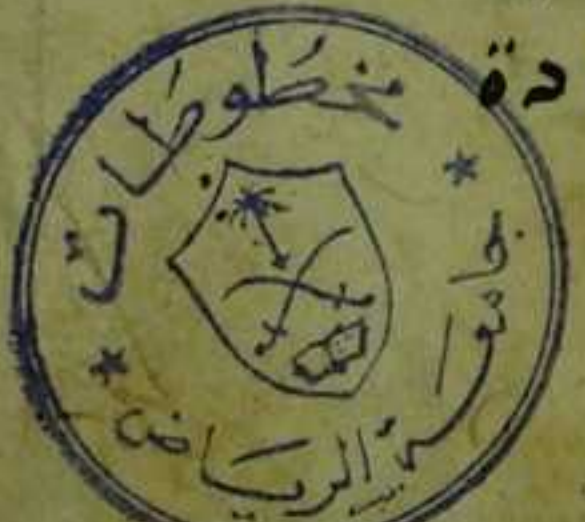 مخطوطات
جامعة الرياض
دة